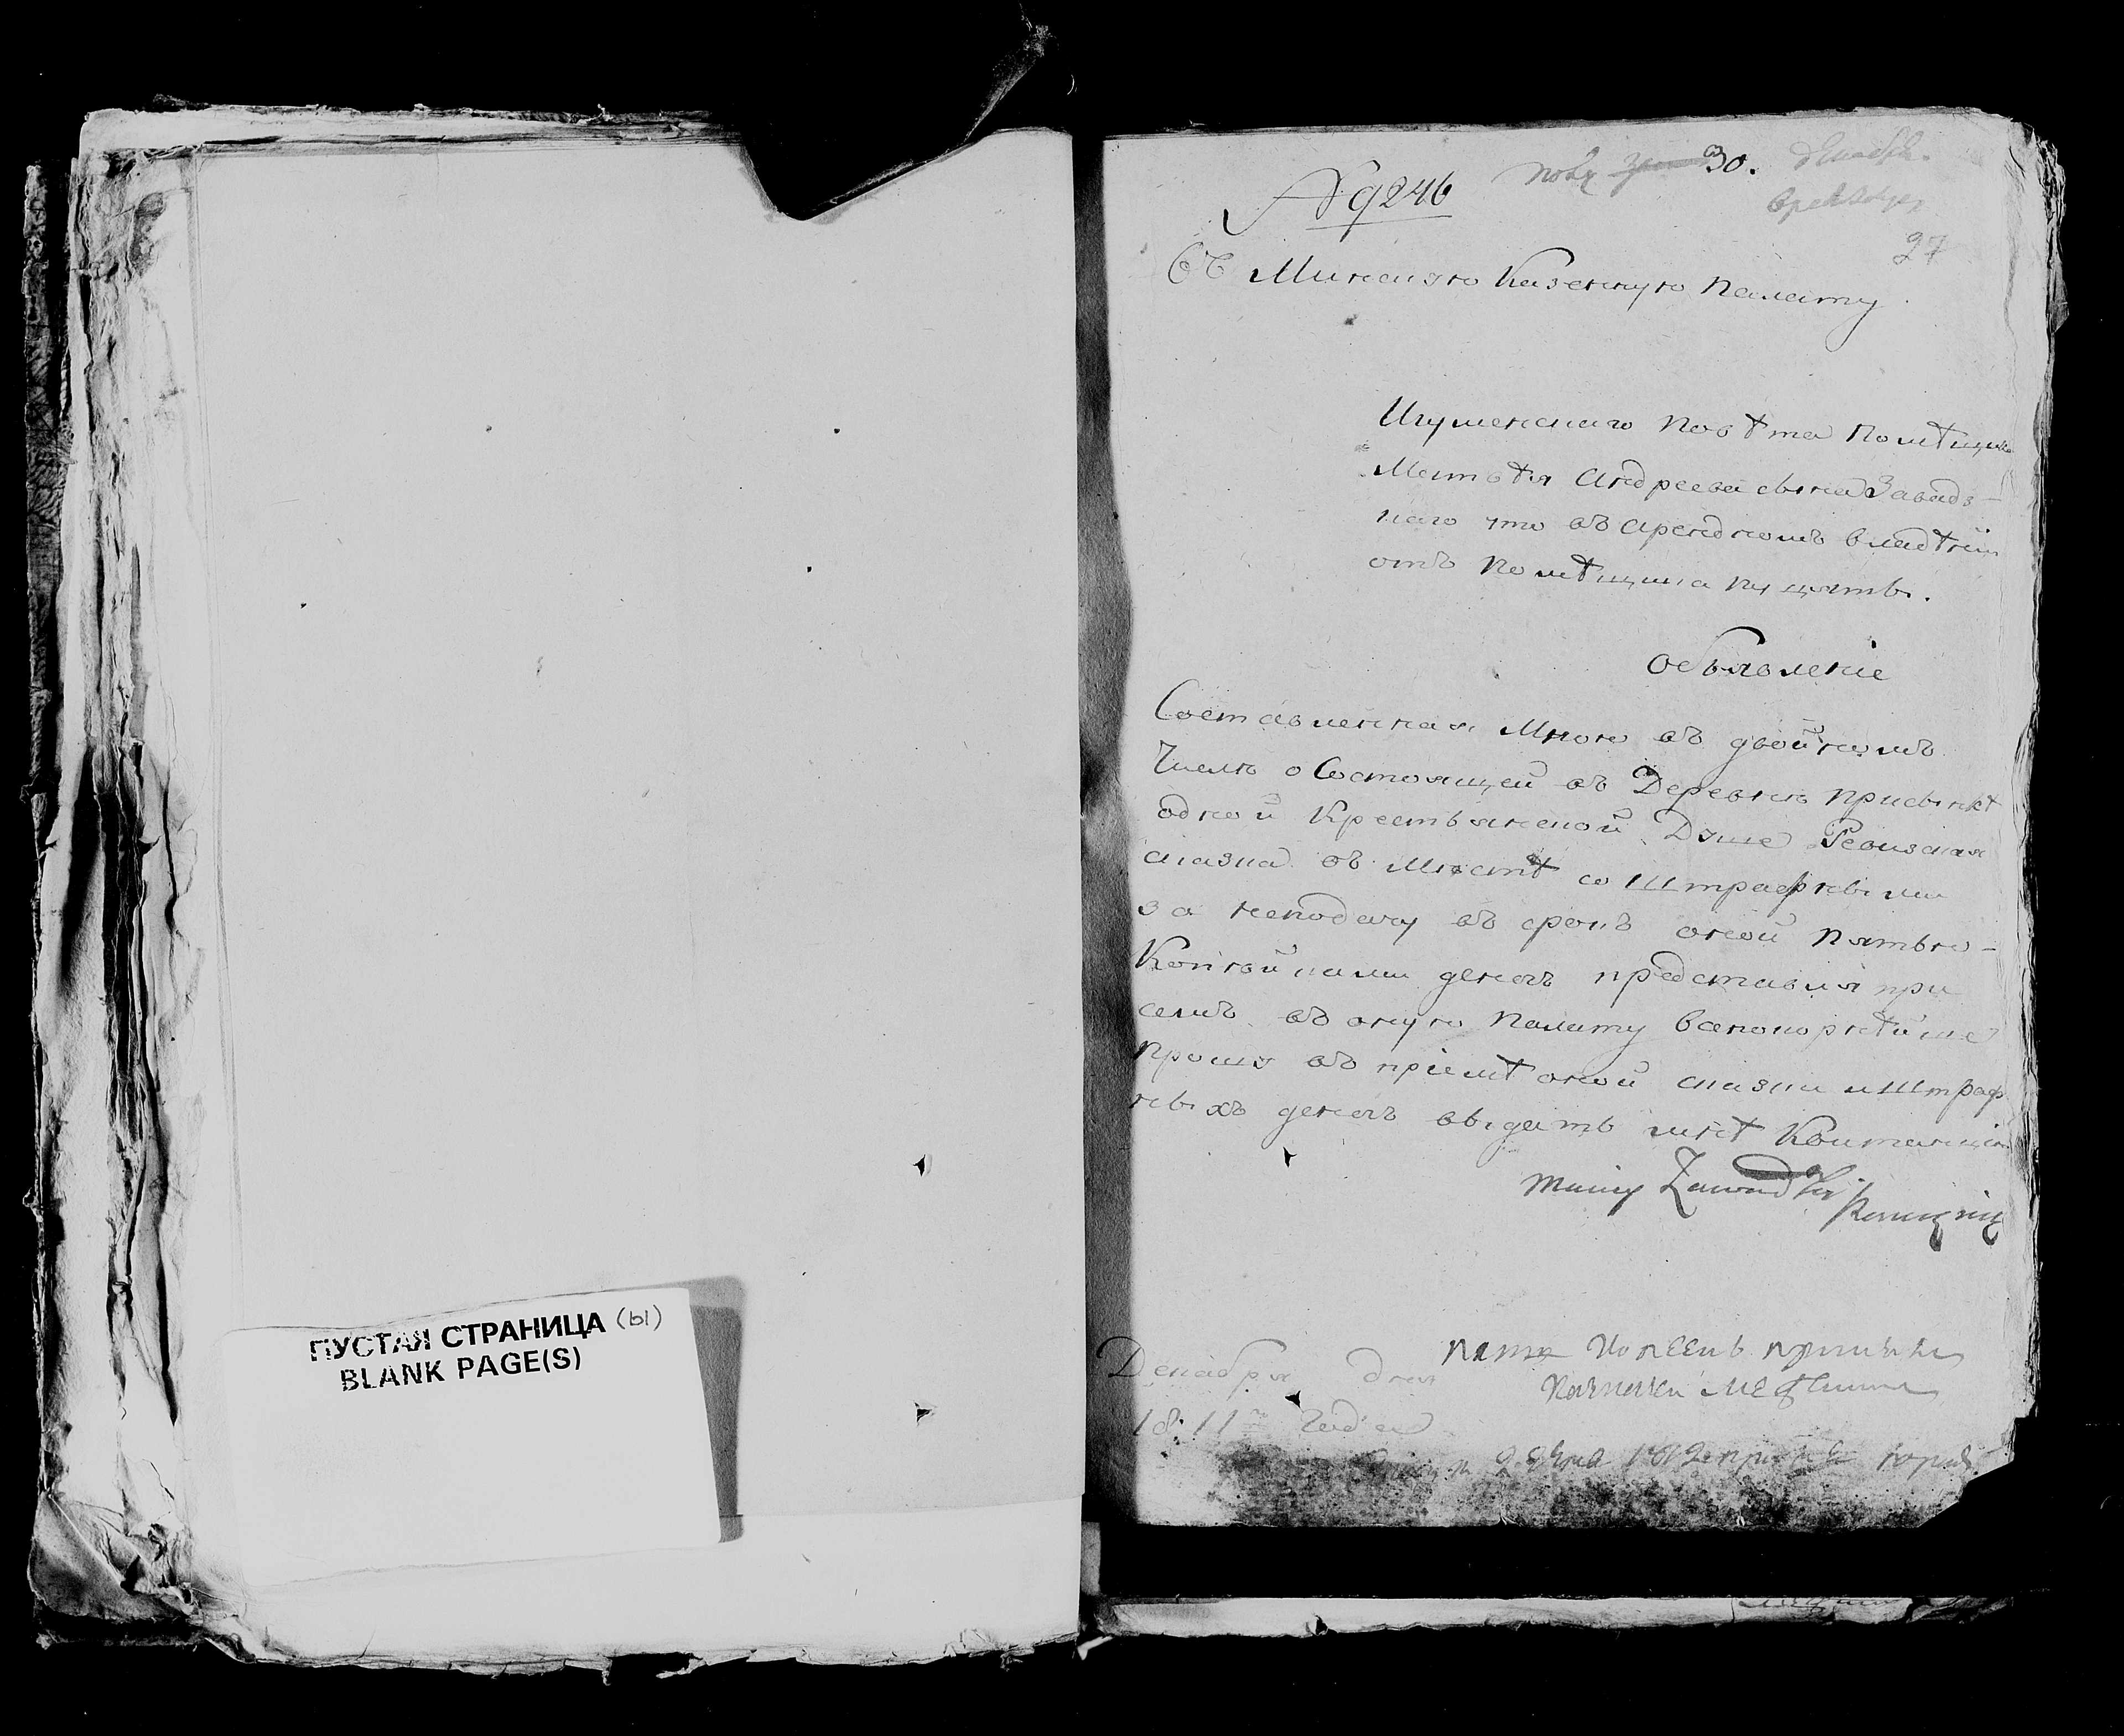 ПУСТАЯ СТРАНИЦА (ы)
BLANK PAGE(S)
№ 9246
30.
27
Въ Минскую Казенную Палату
Игуменскаго Повѣта Помѣщика
Матвѣя Андреева сына Завадз-
каго что въ арендномъ владѣніи
отъ Помѣщика
Объявленіе
Составленная Мною въ двойномъ
числѣ о Состоящей въ Деревнѣ
одной Крестьянской Душе Ревизская
сказка въ Мѣстѣ со Штрафными
за неподачу въ срокъ оной пятью-
Копѣйками денегъ представляя при
семъ въ оную Палату всепокорнѣйше
прошу въ пріемѣ оной сказки и Штраф
ныхъ денегъ выдать мнѣ Квитанцію
Maciey Zawadzki
Декабря дня
1811го Года
пять копеекъ